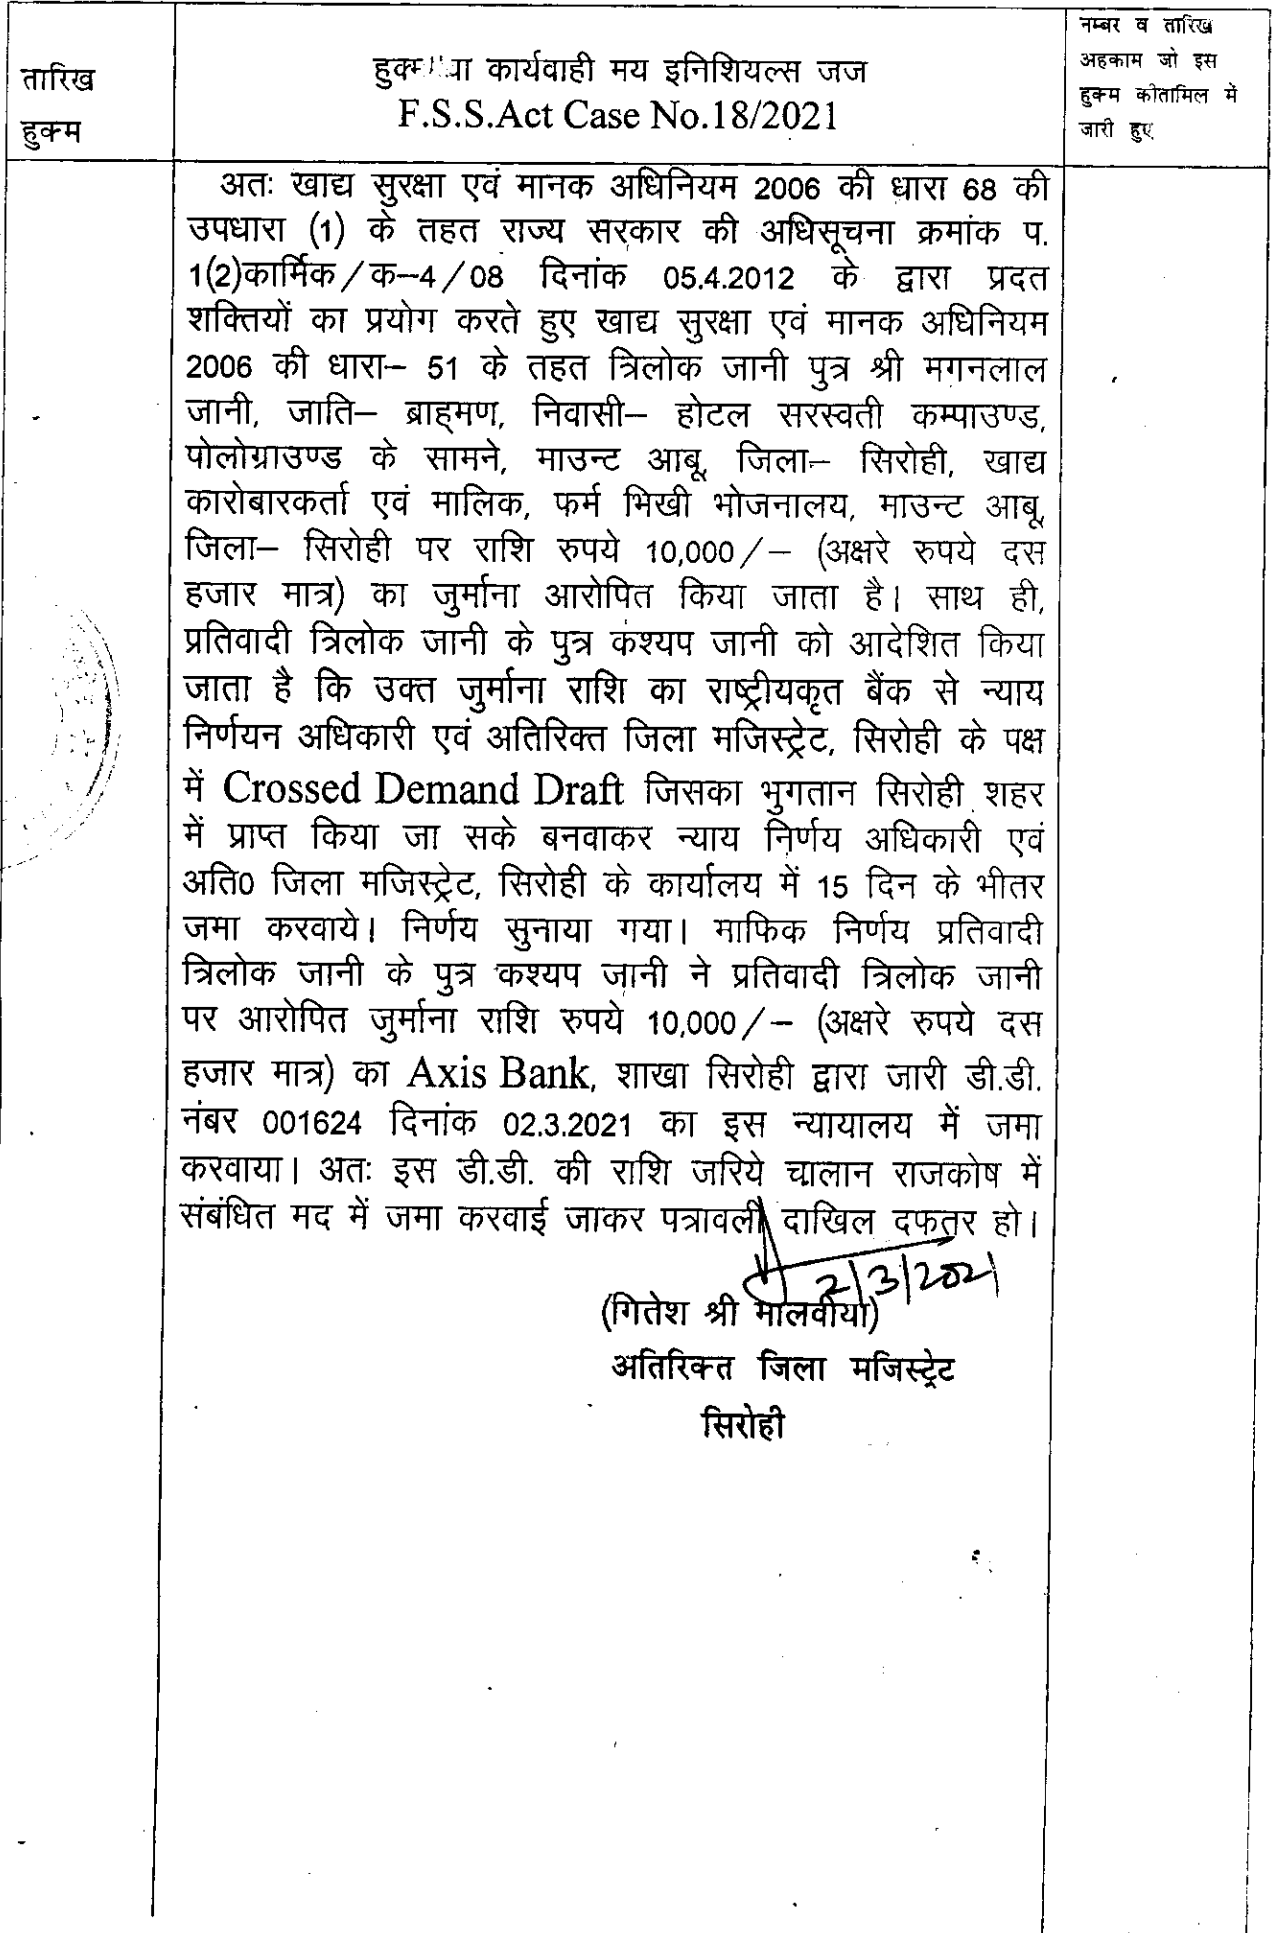 तारिख
हुक्म
कार्यवाही मय इनिशियल्स जज
F.S.S.Act Case No.18/2021
नम्बर व तारिख
अहकाम जो इस
हुक्म कीतामिल में
जारी हुए
अतः खाद्य सुरक्षा एवं मानक अधिनियम 2006 की धारा 68 की
उपधारा (1) के तहत राज्य सरकार की अधिसूचना क्रमांक प.
1(2)कार्मिक/क–4/08 दिनांक 05.4.2012 के द्वारा प्रदत
शक्तियों का प्रयोग करते हुए खाद्य सुरक्षा एवं मानक अधिनियम
2006 की धारा– 51 के तहत त्रिलोक जानी पुत्र श्री मगनलाल
जानी, जाति– ब्राह्मण, निवासी– होटल सरस्वती कम्पाउण्ड,
पोलोग्राउण्ड के सामने, माउन्ट आबू, जिला– सिरोही, खाद्य
कारोबारकर्ता एवं मालिक, फर्म भिखी भोजनालय, माउन्ट आबू,
जिला– सिरोही पर राशि रुपये 10,000/– (अक्षरे रुपये दस
हजार मात्र) का जुर्माना आरोपित किया जाता है। साथ ही,
प्रतिवादी त्रिलोक जानी के पुत्र कश्यप जानी को आदेशित किया
जाता है कि उक्त जुर्माना राशि का राष्ट्रीयकृत बैंक से न्याय
निर्णयन अधिकारी एवं अतिरिक्त जिला मजिस्ट्रेट, सिरोही के पक्ष
में Crossed Demand Draft जिसका भुगतान सिरोही शहर
में प्राप्त किया जा सके बनवाकर न्याय निर्णय अधिकारी एवं
अति0 जिला मजिस्ट्रेट, सिरोही के कार्यालय में 15 दिन के भीतर
जमा करवाये। निर्णय सुनाया गया। माफिक निर्णय प्रतिवादी
त्रिलोक जानी के पुत्र कश्यप जानी ने प्रतिवादी त्रिलोक जानी
पर आरोपित जुर्माना राशि रुपये 10,000/– (अक्षरे रुपये दस
हजार मात्र) का Axis Bank, शाखा सिरोही द्वारा जारी डी.डी.
नंबर 001624 दिनांक 02.3.2021 का इस न्यायालय में जमा
करवाया। अतः इस डी.डी. की राशि जरिये चालान राजकोष में
संबंधित मद में जमा करवाई जाकर पत्रावली दाखिल दफतर हो।
2/3/2021
(गितेश श्री मालवीया)
अतिरिक्त जिला मजिस्ट्रेट
सिरोही